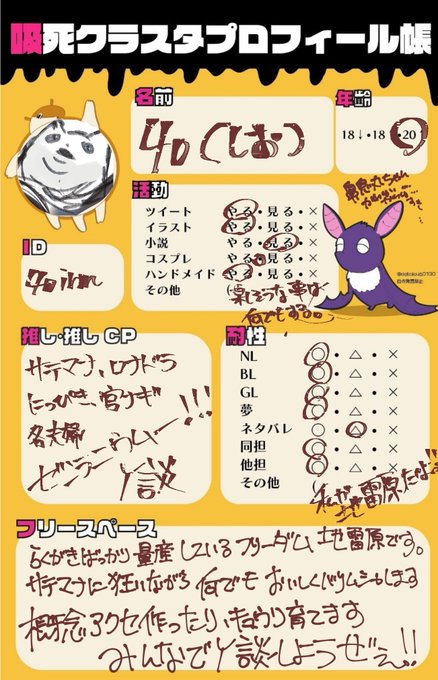 吸死クラスタプロフィール帳
名前
年齢
(しお)
18↓・18・20
活動
ツイート やる・見る・×
イラスト やる・見る・×
小説 やる・見る・×
コスプレ やる・見る・×
ハンドメイド やる・見る・×
その他
何でもする。
ID
推し・推しCP
サテマナ、ロナドラ
名夫婦
ゼンラニウムー!!!
Y談
耐性
NL ○・△・×
BL ○・△・×
GL ○・△・×
夢 ○・△・×
ネタバレ ○・△・×
同担 ○・△・×
他担 ○・△・×
その他
私が地雷原だよ!!
フリースペース
らくがきばっかり量産しているフリーダム地雷原です。
サテマナに狂いながら何でもおいしくバリムシャします
概念アクセ作ったり、きゅうり育てます
みんなでY談しようぜぇ!!